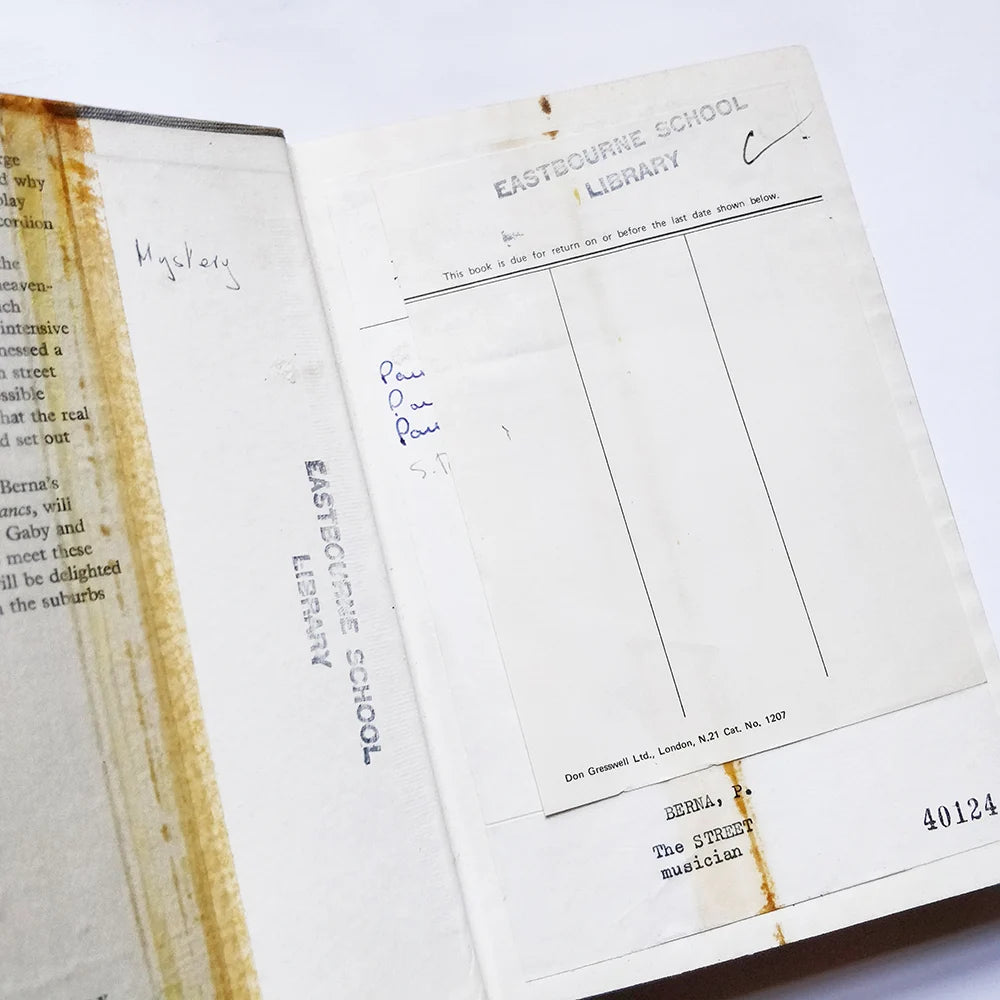 why
play
cordion
the
heaven-
intensive
a
street
hat the real
d set out
Berna's
ancs, will
Gaby and
meet these
ill be delighted
the suburbs
Mystery
EASTBOURNE SCHOOL
LIBRARY
EASTBOURNE SCHOOL
LIBRARY
This book is due for return on or before the last date shown below.
Pau
Pau
Don Gresswell Ltd., London, N.21 Cat. No. 1207
BERNA, P.
The STREET
musician
40124